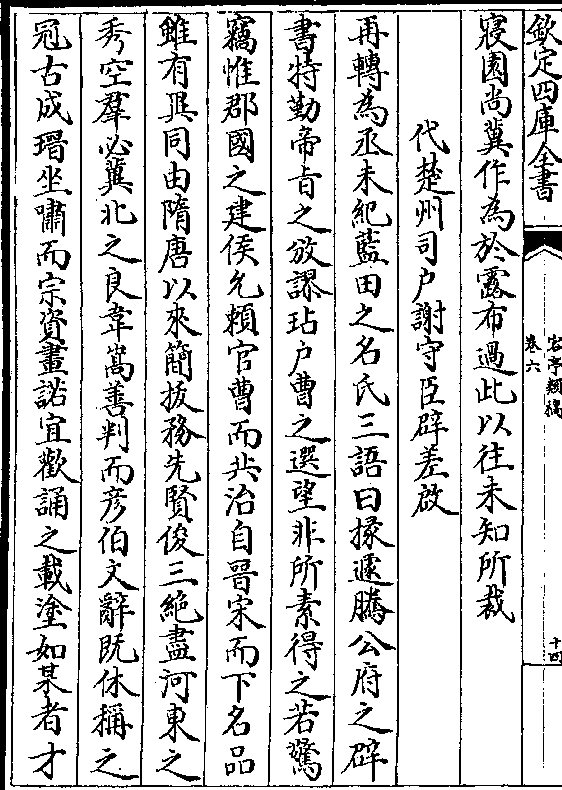 欽定四庫全書
客亭類稿
卷六
十四
寢園尚冀作為於露布過此以往未知所裁
代楚州司户謝守臣辟差啟
再轉為丞未紀藍田之名氏三語曰掾遽騰公府之辟
書特勤帝㫖之放謬玷户曹之選望非所素得之若驚
竊惟郡國之建侯允賴官曹而共治自晉宋而下名品
雖有異同由隋唐以來簡拔務先賢俊三絶盡河東之
秀空羣必冀北之良韋嵩善判而彦伯文辭既休稱之
冠古成瑨坐嘯而宗資畫諾宜歡誦之載塗如某者才